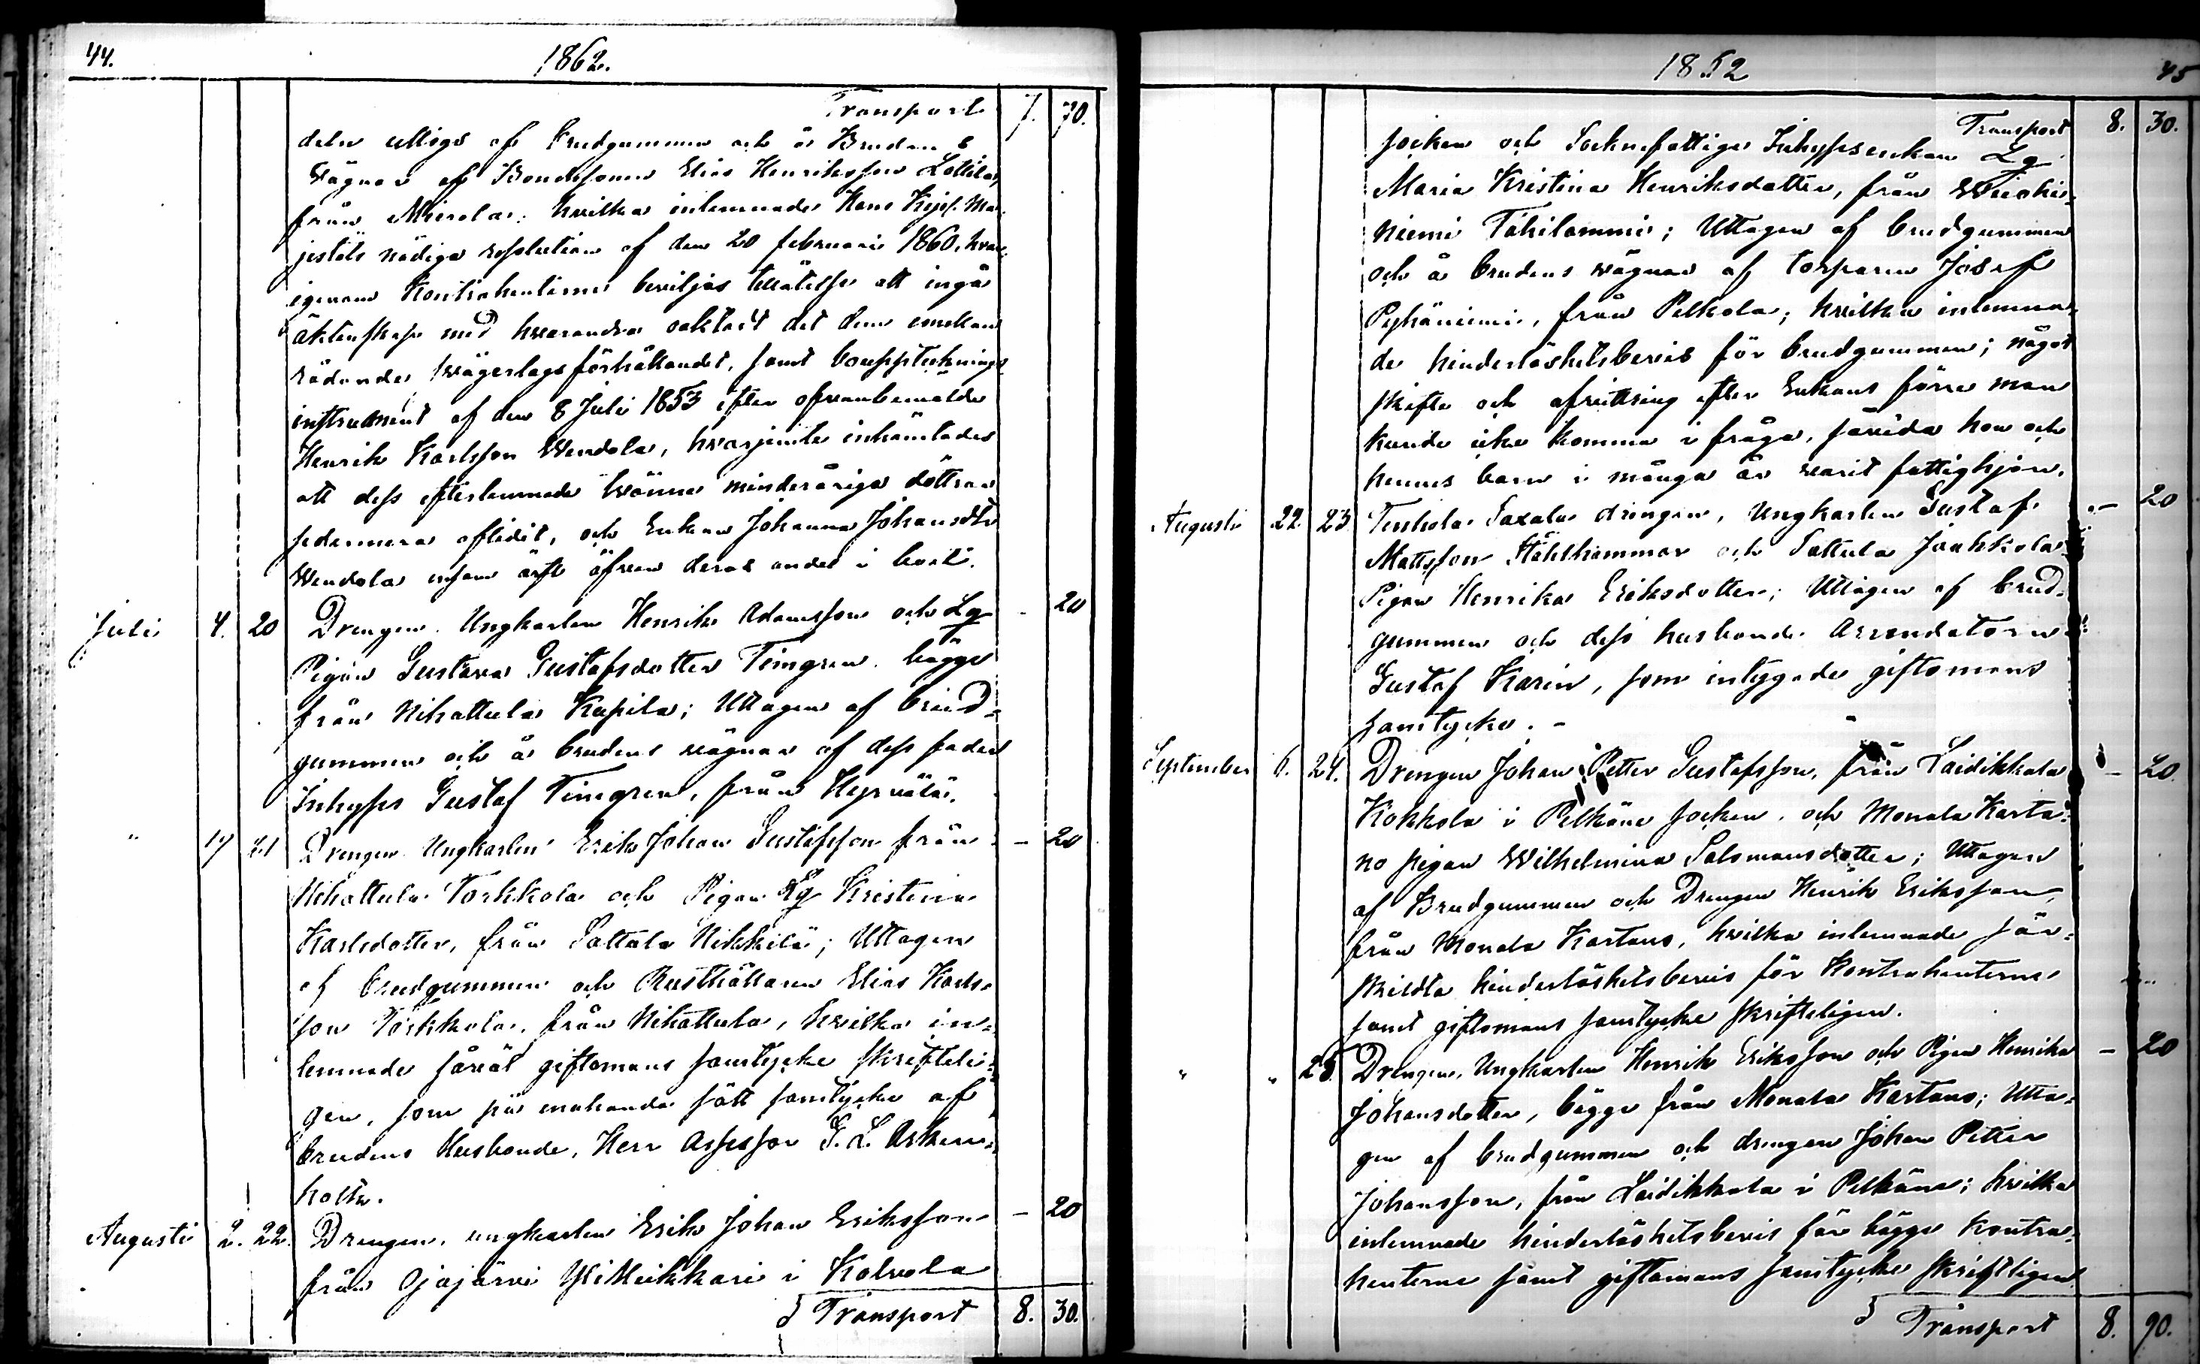 44.
1862.
Transport 7. 70.
dela uttogs af Brudgummen och å Brudens
vägnar af Bondesonen Elias Henriksson Lottila,
från Mierola; hvilka inlemnade Hans Kejs. Ma-
jestäts nådiga resolution af den 20 februari 1860, hvar-
igenom Kontrahenterne beviljas tillåtelse att ingå
äktenskap med hvarandra oaktadt det dem emellan
rådande svågerlagsförhållandet, samt bouppteknings
instrument af den 8 Juli 1853 efter ofvanbemälde
Henrik Karlsson Wendola, hvarjemte inhämtades
att dess efterlemnade tvänne minderåriga döttrar
sedermera aflidit, och Enkan Johanna Johansdtr
Wendola ensam ärft äfven deras andel i boet.
Juli 4. 20 Drengen, Ungkarlen Henrik Adamsson och Lg - 20
Pigan Gustava Gustafsdotter Timgren, bägge
från Nihattula Kapila; Uttagen af brud-
gummen och å brudens vägnar af dess fader
Inhyses Gustaf Timgren, från Hyrvälä.
" 17 21 Drengen Ungkarlen Erik Johan Gustafsson från - 20
Nihattula Torkkola och Pigan Lg Kristina
Karlsdotter, från Sattula Nikkilä; Uttagen
af brudgummen och Rusthållaren Elias Karls-
son Torkkola, från Nihattula, hvilka in-
lemnade såväl giftomans samtycke skriftli-
gen, som på enahanda sätt samtycke af
brudens Husbonde, Herr Assessor G. L. Asken-
holtz.
Augusti 2. 22. Drengen, ungkarlen Erik Johan Eriksson - 20
från Ojajärvi Yli Heikkari i Kalvola
Transport 8. 30.
1862
45
Transport 8. 30.
socken och Socknefattiga Inhysesenkan Lg
Maria Kristina Henriksdotter, från
niemi Tähilammi; Uttagen af brudgummen
och å brudens vägnar af torparen Josef
Pyhäniemi, från Pelkola; hvilka inlemna-
de hinderlöshetsbevis för brudgummen; något
skifte och afvittring efter Enkans förre man
kunde icke komma i fråga, såvida hon och
hennes barn i många år varit fattighjon.
Augusti 22. 23. Tenhola Saxala drengen, Ungkarlen Gustaf - 20
Mattsson Stålhammar och Sattula Jaakkola
Pigan Henrika Eriksdotter; Uttagen af brud-
gummen och dess husbonde Arrendatorn
Gustaf Karin, som intygade giftomans
samtycke. -
September 6. 24. Drengen Johan Petter Gustafsson, från Laidikkala - 20.
Kokkola i Pelkäne socken, och Monala Karta-
no pigan Wilhelmina Salomonsdotter; Uttagen
af Brudgummen och Drengen Henrik Eriksson,
från Monala Kartano, hvilka inlemnade sär-
skildta hinderlöshetsbevis för Kontrahenterne
samt giftomans samtycke skrifteligen.
" " 25. Drengen, Ungkarlen Henrik Eriksson och Pigan Henrika - 20
Johansdotter, bägge från Monala Kartano; Utta-
gen af brudgummen och drengen Johan Petter
Johansson, från Laidikkala i Pelkäne; hvilka
inlemnade hinderlöshetsbevis för bägge kontra-
henterne samt giftomans samtycke skriftligen
Transport 8. 90.